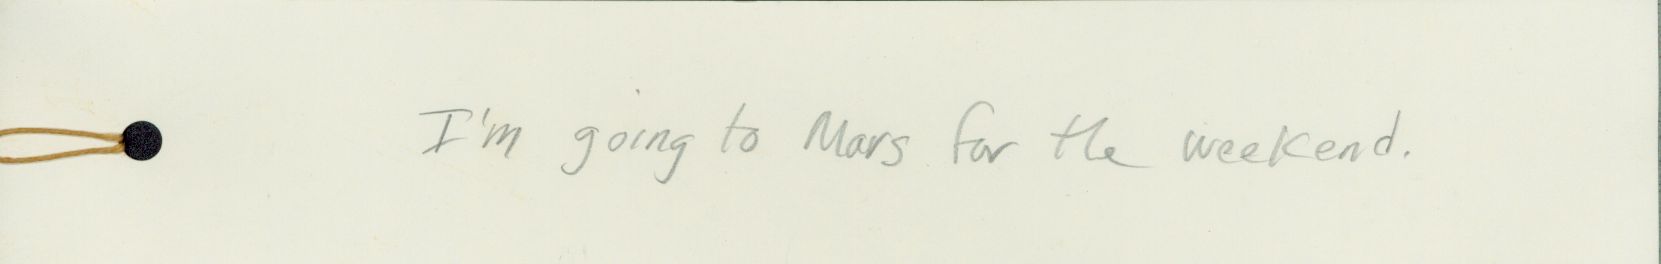 I'm going to Mars for the weekend.